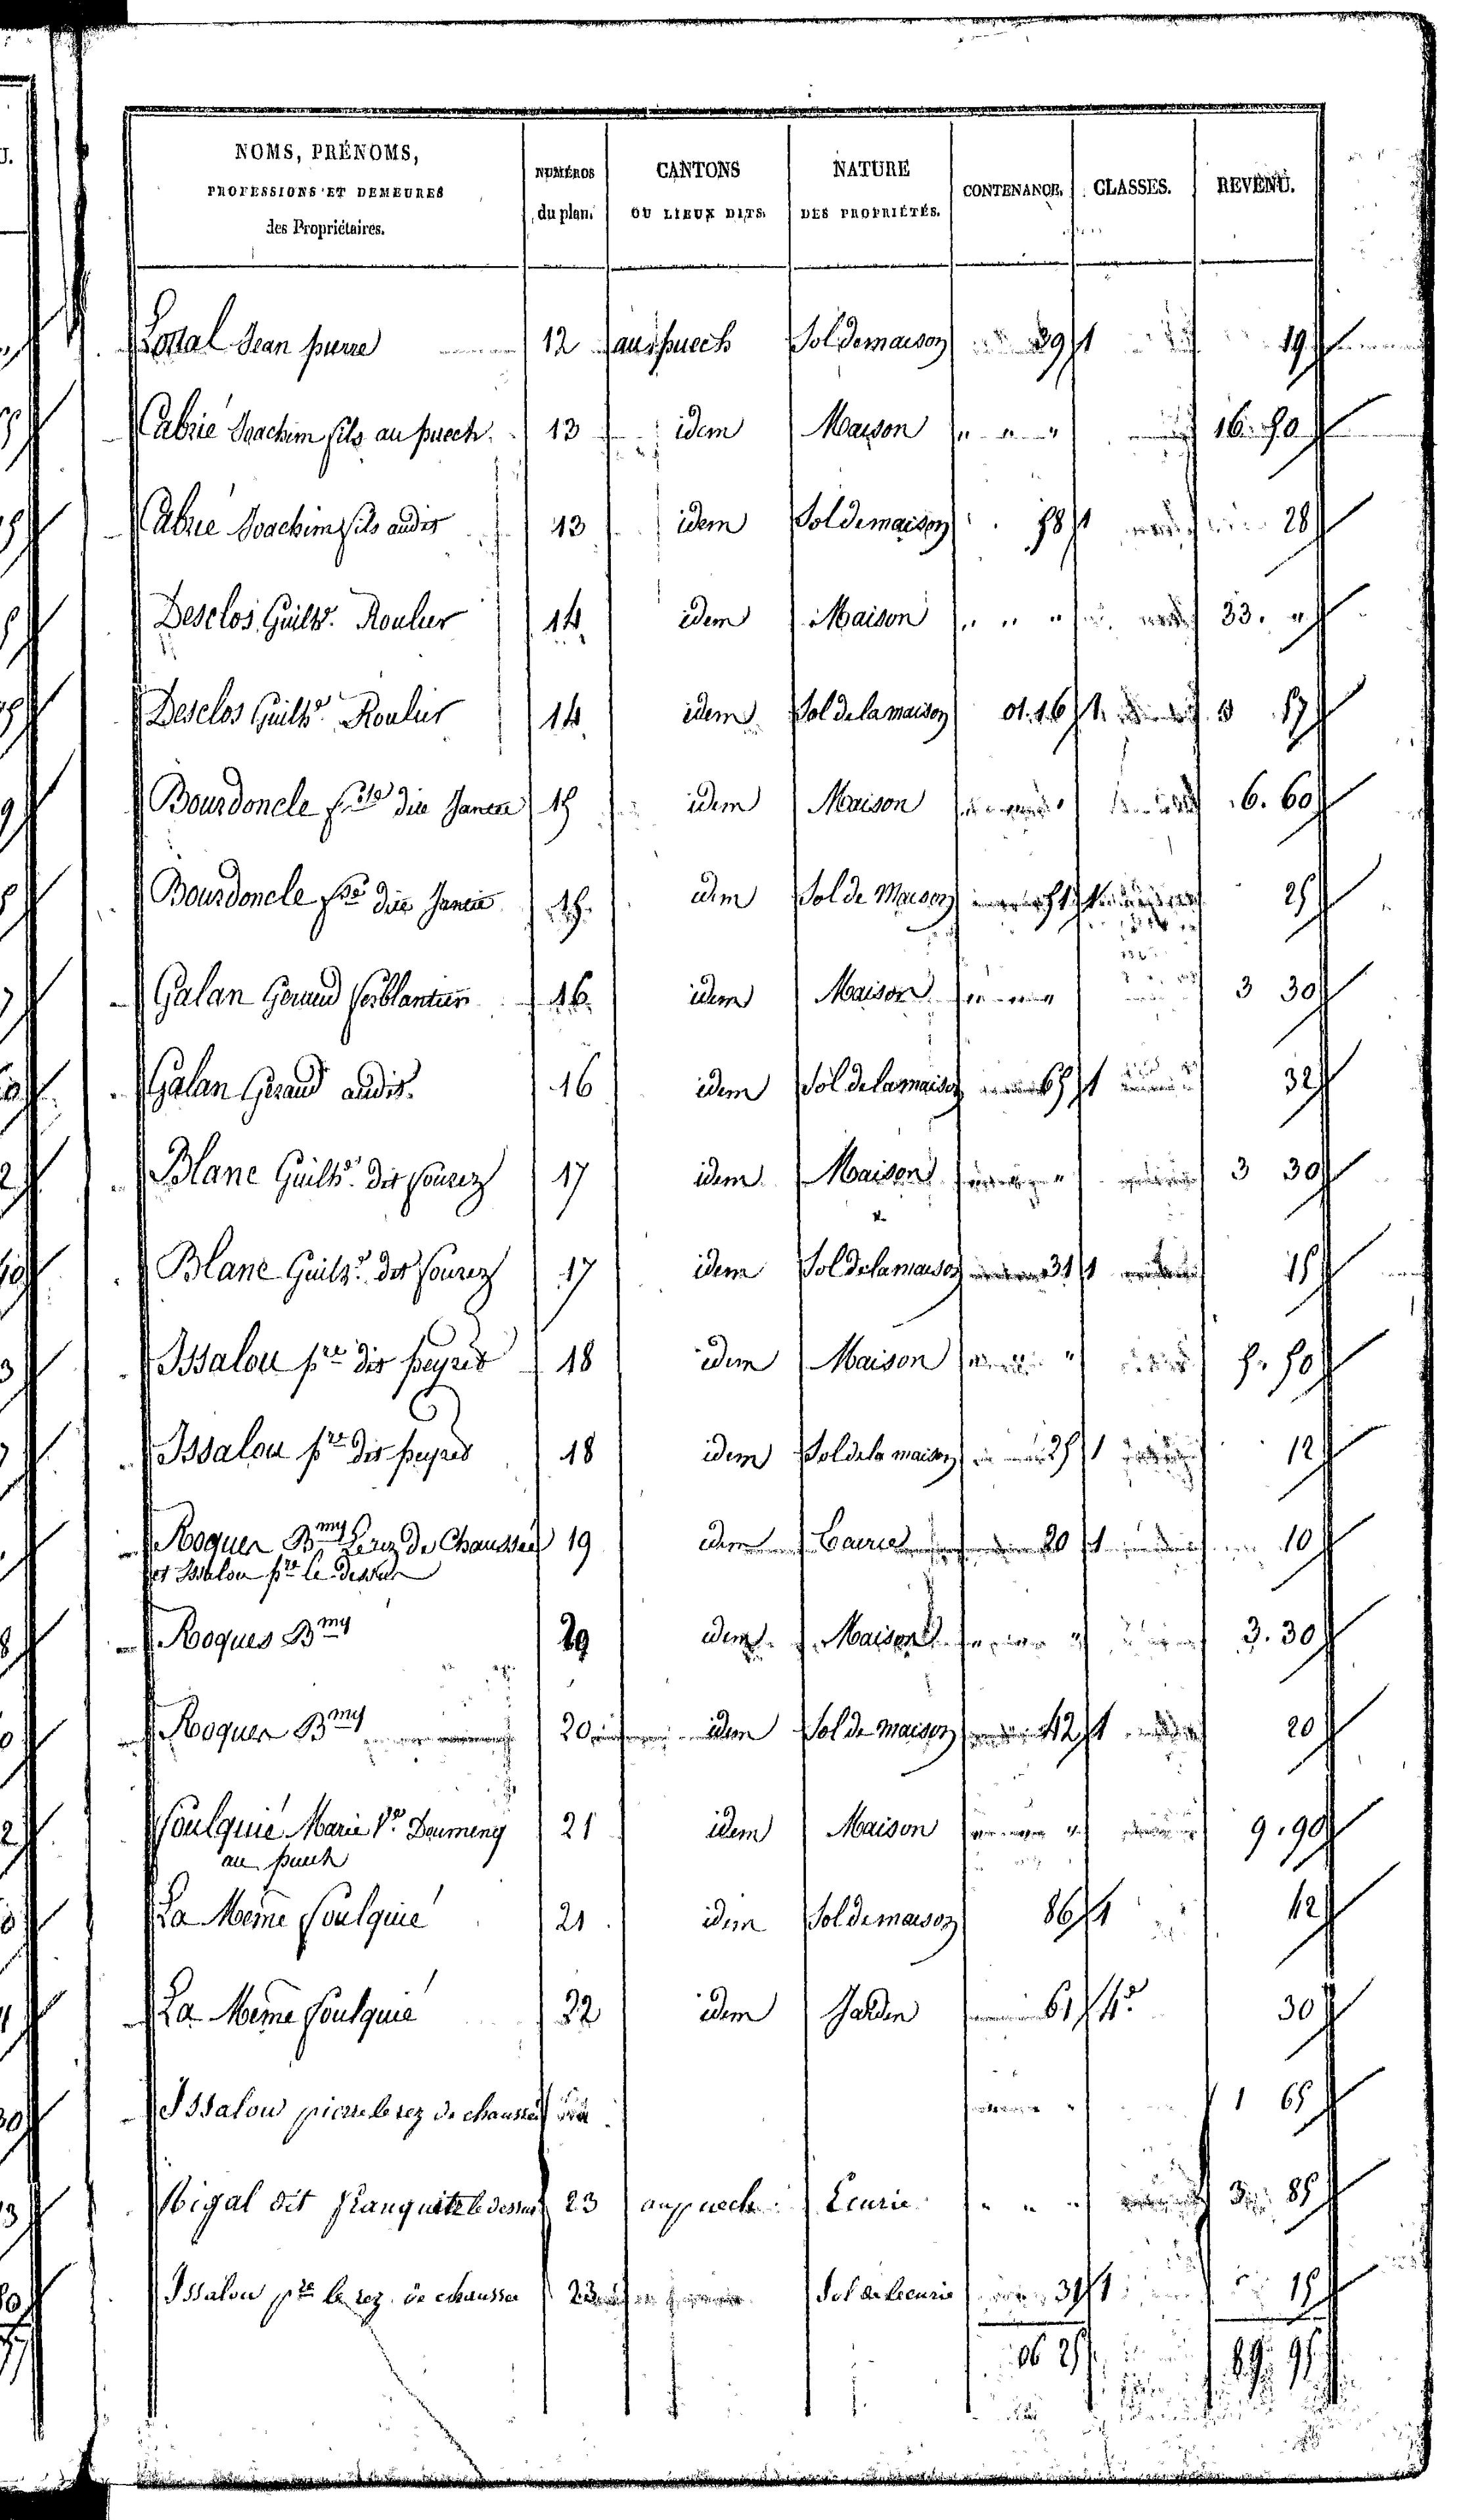 NOMS, PRÉNOMS, PROFESSIONS ET DEMEURES des Propriétaires. NUMÉROS du plan. CANTONS OU LIEUX DITS. NATURE DES PROPRIÉTÉS. CONTENANCE. CLASSES. REVENU.
Jean pierre 12 au puech Sol de maison 39 1 19
Cabrié Joachim fils au puech. 13 idem Maison " " " 16. 50
Cabrié Joachim fils audit 13 idem Sol de maison 58 1 28
Desclos Guilhe. Roulier 14 idem Maison " " " 33. "
Desclos Guilhe. Roulier 14 idem Sol de la maison 01.16 1 57
Bourdoncle dite 15 idem Maison 6. 60
Bourdoncle dite 15. idem Sol de Maison 51 1 25
Galan Geraud ferblantier 16. idem Maison 3 30
Galan Geraud audit. 16 idem Sol de la maison 65 1 32
Blanc Guilhe. dit fourez 17 idem Maison 3 30
Blanc Guilhe. dit fourez 17 idem Sol de la maison 31 1 15
Issalou pre dit peyret 18 idem Maison 5. 50
Issalou pre dit peyret 18 idem Sol de la maison 25 1 12
Roques Bmy Le rez de Chaussée 19 idem Ecurie 20 1 10
et Issalou pre le dessus
Roques Bmy idem Maison 3. 30
Roques Bmy 20 idem Sol de maison 42 1 20
Foulquié Marie Ve Doumeng 21 idem Maison 9. 90
au puech
La Meme Foulquié 21 idem Sol de maison 86 1 42
La Meme Foulquié 22 idem Jardin 61 4e 30
Issalou pierre le rez de chaussée 1 65
Rigal dit franquet le dessus 23 au puech Ecurie " " " 3. 85
Issalou pre le rez de chaussee 23 Sol de l'ecurie 31 1 15
06 25 89. 95